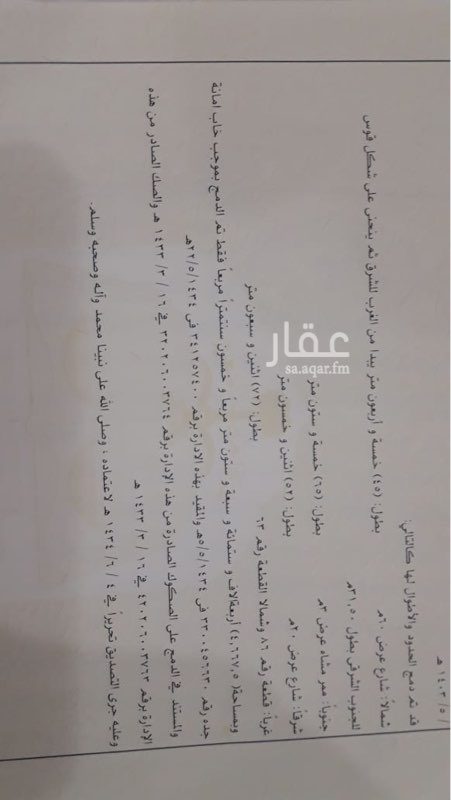 / ٥ / ١٤٠٣ هـ
قد تم دمج الحدود والأطوال لها كالتالي:
شمالاً: شارع عرض ٦٠م بطول: (٤٥) خمسة و أربعون متر يبدا من الغرب للشرق ثم ينحني على شكل قوس
للجنوب الشرقي بطول ٣١,٥٠م
جنوباً: ممر مشاه عرض ٣م بطول: (٦٥) خمسة و ستون متر
شرقاً: شارع عرض ٢٠م بطول: (٥٢) اثنين و خمسون متر
غرباً: قطعة رقم ٨٦ وشمالا القطعة رقم ٦٣ بطول: (٧٢) اثنين و سبعون متر
وبمساحة( ٤,٦٦٧,٥) أربعةآلاف و ستمائة و سبعة و ستون متر مربعاً و خمسون سنتمتراً مربعاً فقط تم الدمج بموجب خاب امانة
جده رقم ٣٣٠٠٤٥٦٦٣٠ في ٥/٥/١٤٣٤هـ والمقيد بهذه الإدارة برقم ٣٤١٢٥٧٤٠٠ في ٢٢/٥/١٤٣٤هـ
والمستند في الدمج على الصكوك الصادرة من هذه الإدارة برقم ٣٢٠٢٠٦٠٠٣٧٦٤ في ١٦ / ٣ / ١٤٣٣ هـ والصك الصادر من هذه
الإدارة برقم ٤٢٠٢٠٦٠٠٣٧٦٣ في ١٦ / ٣ / ١٤٣٣ هـ
وعليه جرى التصديق تحريراً في ٤ / ٦ / ١٤٣٤ هـ لاعتماده ، وصلى الله على نبينا محمد وآله وصحبه وسلم.
عقار
sa.aqar.fm